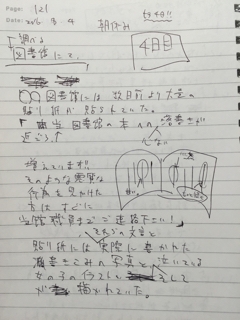 Page: 121
Date: 2016・8・4 朝休み
4日目
「調べる
図書館にて、
〇〇図書館には数日前より大きめ
貼り紙が貼られていた。
「当図書館の本への落書きが
心ない
近ごろ、
増えています!!
そのような悪質な
行為を見かけた
方はすぐに
当館職員までご連絡下さい!」
それらの文言と
貼り紙には実際に書かれた
落書きこみの写真と泣いている
女の子のイラスト
そして
が 描かれていた。